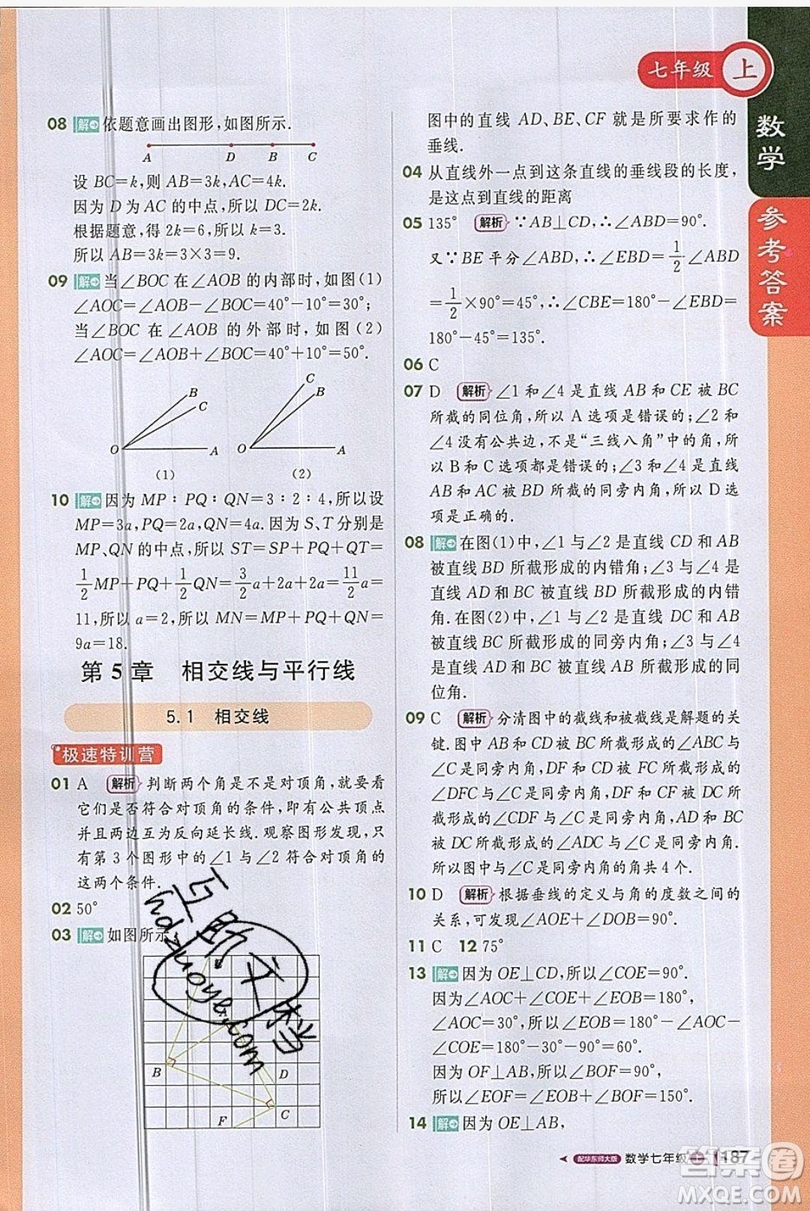 七年级 上
数学
参考答案
08 解 依题意画出图形,如图所示.
A D B C
设 BC=k,则 AB=3k,AC=2k.
因为 D 为 AC 的中点,所以 DC=2k.
根据题意,得 2k=6,所以 k=3.
所以 AB=3×3=9.
09 解 当∠BOC 在∠AOB 的内部时,如图(1)
∠AOC=∠AOB-∠BOC=40°-10°=30°;
当∠BOC 在∠AOB 的外部时,如图(2)
∠AOC=∠AOB+∠BOC=40°+10°=50°.
B C O A
(1)
C B O A
(2)
10 解 因为 MP∶PQ∶QN=3∶2∶4,所以设
MP=3a,PQ=2a,QN=4a.因为 S、T 分别是
MP、QN 的中点,所以 ST=SP+PQ+QT=
1/2 MP+PQ+1/2 QN=3/2 a+2a+2a=11/2 a=
11,所以 a=2,所以 MN=MP+PQ+QN=
9a=18.
第 5 章 相交线与平行线
5.1 相交线
极速特训营
01 A 解析 判断两个角是不是对顶角,就要看
它们是否符合对顶角的条件,即有公共顶点
并且两边互为反向延长线.观察图形发现,只
有第 3 个图形中的∠1 与∠2 符合对顶角的
这两个条件.
02 50°
03 解 如图所示,
B D F C
图中的直线 AD、BE、CF 就是所要求作的
垂线.
04 从直线外一点到这条直线的垂线段的长度,
是这点到直线的距离
05 135° 解析 ∵AB⊥CD,∴∠ABD=90°.
又∵BE 平分∠ABD,∴∠EBD=1/2∠ABD
=1/2×90°=45°,∴∠CBE=180°-∠EBD=
180°-45°=135°.
06 C
07 D 解析 ∠1 和∠4 是直线 AB 和 CE 被 BC
所截的同位角,所以 A 选项是错误的;∠2 和
∠4 没有公共边,不是“三线八角”中的角,所
以 B 和 C 选项都是错误的;∠3 和∠4 是直线
AB 和 AC 被 BC 所截的同旁内角,所以 D 选
项是正确的.
08 解 在图(1)中,∠1 和∠2 是直线 CD 和 AB
被直线 BD 所截形成的内错角;∠3 和∠4 是
直线 AD 和 BC 被直线 BD 所截形成的内错
角.在图(2)中,∠1 和∠2 是直线 DC 和 AB
被直线 BC 所截形成的同旁内角;∠3 和∠4
是直线 AD 和 BC 被直线 AB 所截形成的同
位角.
09 C 解析 分清图中的截线和被截线是解题的关
键.如题图,∠B 与∠C 是同旁内角,
∠DFC 与∠C 是同旁内角,直线 DF 和 AC 所
形成的∠CDF 与∠C 是同旁内角,直线 AD
和 AC 所形成的∠ADC 与∠C 是同旁内角.
所以图中与∠C 是同旁内角的角共 4 个.
10 D 解析 根据垂线的定义与角的度数之间的
关系,可知∠AOE+∠DOB=90°.
11 C 12 75°
13 解 因为 OE⊥CD,所以∠COE=90°.
∠AOC=30°,所以∠BOE=180°-∠AOC-
∠COE=180°-30°-90°=60°.
因为 OF⊥AB,所以∠BOF=90°.
所以∠EOF=∠BOE+∠BOF=150°.
14 解 因为 OE⊥AB,
互助文档
hdzuoyb.com
配华东师大版 数学七年级 上 187
答案圈
MXQE.COM